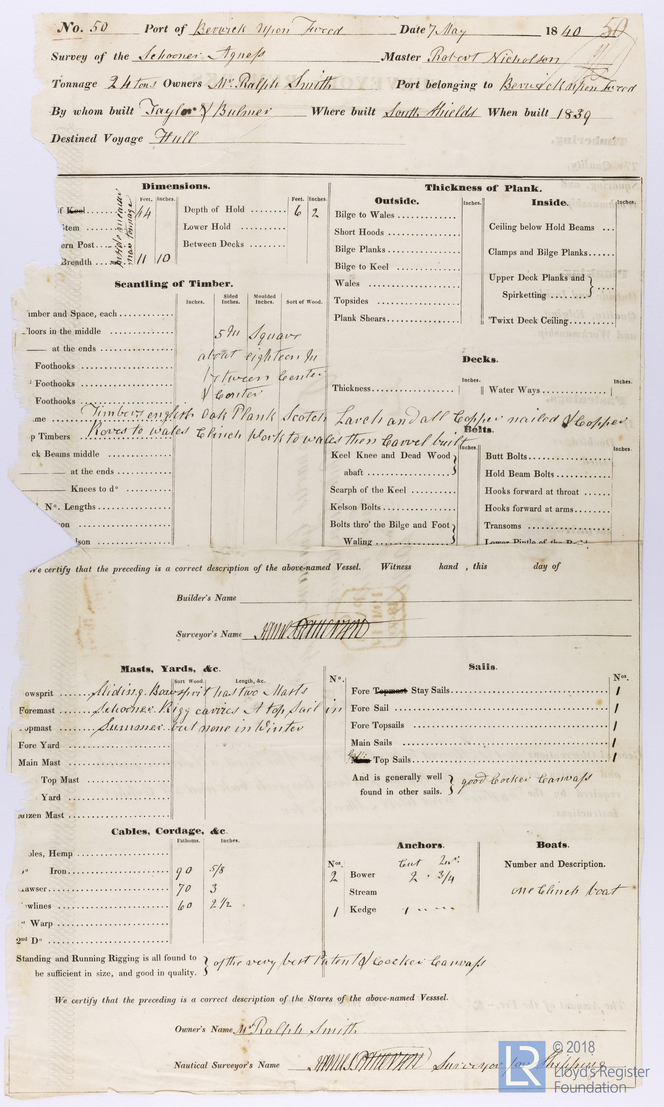 No. 50 Port of Berwick upon Tweed Date 7 May 1840 50
Survey of the Schooner Agness Master Robert Nicholson
Tonnage 24 tons Owners Mr. Ralph Smith Port belonging to Berwick upon Tweed
By whom built Taylor & Bulmer Where built South Shields When built 1839
Destined Voyage Hull
Dimensions.
Feet. Inches. Feet. Inches.
of Keel 44 Depth of Hold 6 2
Stem Lower Hold
ern Post Between Decks
Breadth 11 10
Thickness of Plank.
Outside. Inches. Inside. Inches.
Bilge to Wales Ceiling below Hold Beams
Short Hoods
Bilge Planks Clamps and Bilge Planks
Bilge to Keel
Wales Upper Deck Planks and
Topsides Spirketting
Plank Shears 'Twixt Deck Ceiling
Scantling of Timber.
Inches. Sided Inches. Moulded Inches. Sort of Wood.
imber and Space, each
loors in the middle 5 In Square
at the ends about eighteen In
Foothooks between Center
Foothooks & Center
Foothooks
Decks.
Inches. Inches.
Thickness Water Ways
me Timbers english oak Plank Scotch Larch and all Copper nailed & Copper
p Timbers Roves to wales Clinch Work to wales then Carvel built
Bolts.
Inches. Inches.
ck Beams middle
at the ends
Knees to do
No. Lengths
son
elson
Keel Knee and Dead Wood abaft Butt Bolts
Hold Beam Bolts
Scarph of the Keel Hooks forward at throat
Kelson Bolts Hooks forward at arms
Bolts thro' the Bilge and Foot Waling Transoms
Lower Pintle of the
We certify that the preceding is a correct description of the above-named Vessel. Witness hand, this day of
Builder's Name
Surveyor's Name
Masts, Yards, &c.
Sort Wood. Length, &c.
owsprit Sliding Bowsprit has two Masts
Foremast Schooner Rigg carries A top Sail in
opmast Summer but none in Winter
Fore Yard
Main Mast
Top Mast
Yard
izzen Mast
Sails.
No. Nos.
Fore Topmast Stay Sails 1
Fore Sail 1
Fore Topsails 1
Main Sails 1
Top Sails 1
And is generally well found in other sails. good Cocker Canvass
Cables, Cordage, &c.
Fathoms. Inches.
bles, Hemp
Iron 90 5/8
awser 70 3
wlines 60 2 1/2
Warp
2nd Do
Anchors.
Nos.
2 Bower 2 . 3/4
Stream
1 Kedge 1
Boats.
Number and Description.
one Clinch boat
Standing and Running Rigging is all found to be sufficient in size, and good in quality. of the very best Patent & Cocker Canvass
We certify that the preceding is a correct description of the Stores of the above-named Vesssel.
Owner's Name Mr Ralph Smith
Nautical Surveyor's Name Surveyor for Shipping
LR © 2018
Lloyd's Register
Foundation